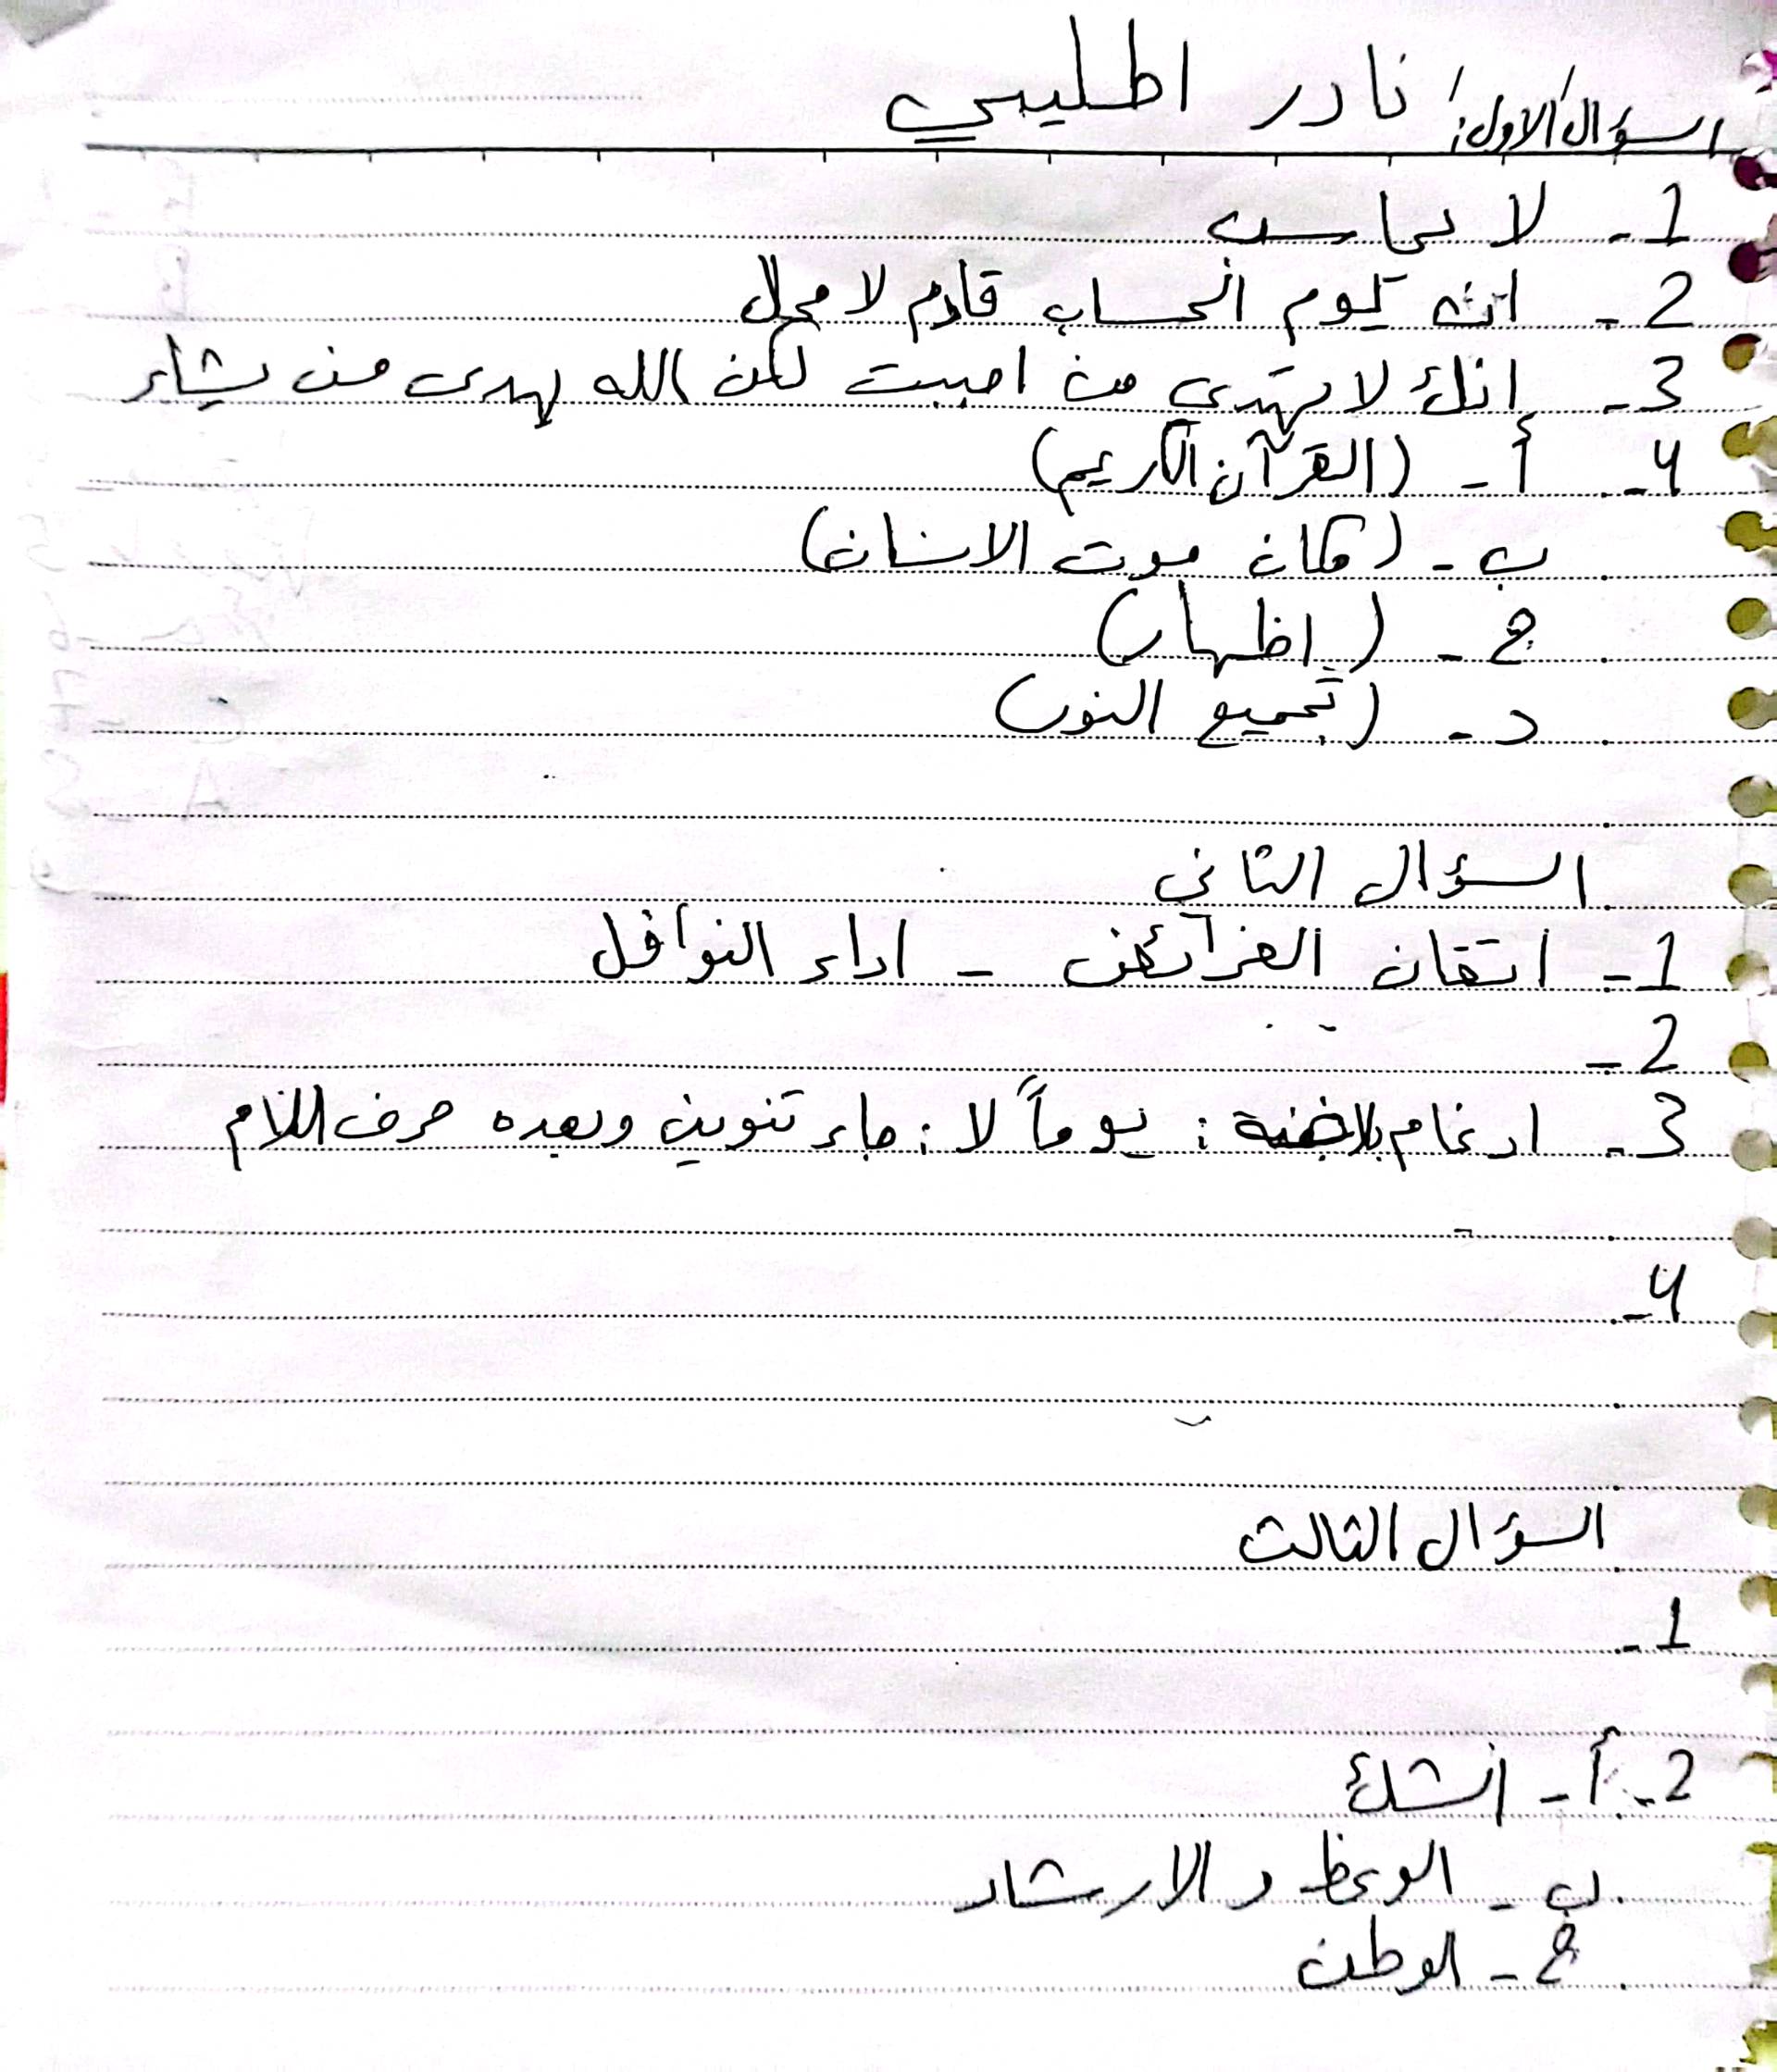 السؤال الاول: نادر اطليبي
1- لا يحاسب
2- انه يوم الحساب قادم لا محال
3- إنك لا تهدي من احببت لكن الله يهدي من يشاء
4- أ- (القرآن الكريم)
ب- (مكان موت الانسان)
ج- (إظهار)
د- (تجميع النور)
السؤال الثاني
1- اتقان الفرائض - اداء النوافل
2-
3- ادغام بلا غنة: يوماً لا: جاء تنوين وبعده حرف اللام
4-
السؤال الثالث
1-
2- أ- الشك
ب- الوعظ و الارشاد
ج- الوطن